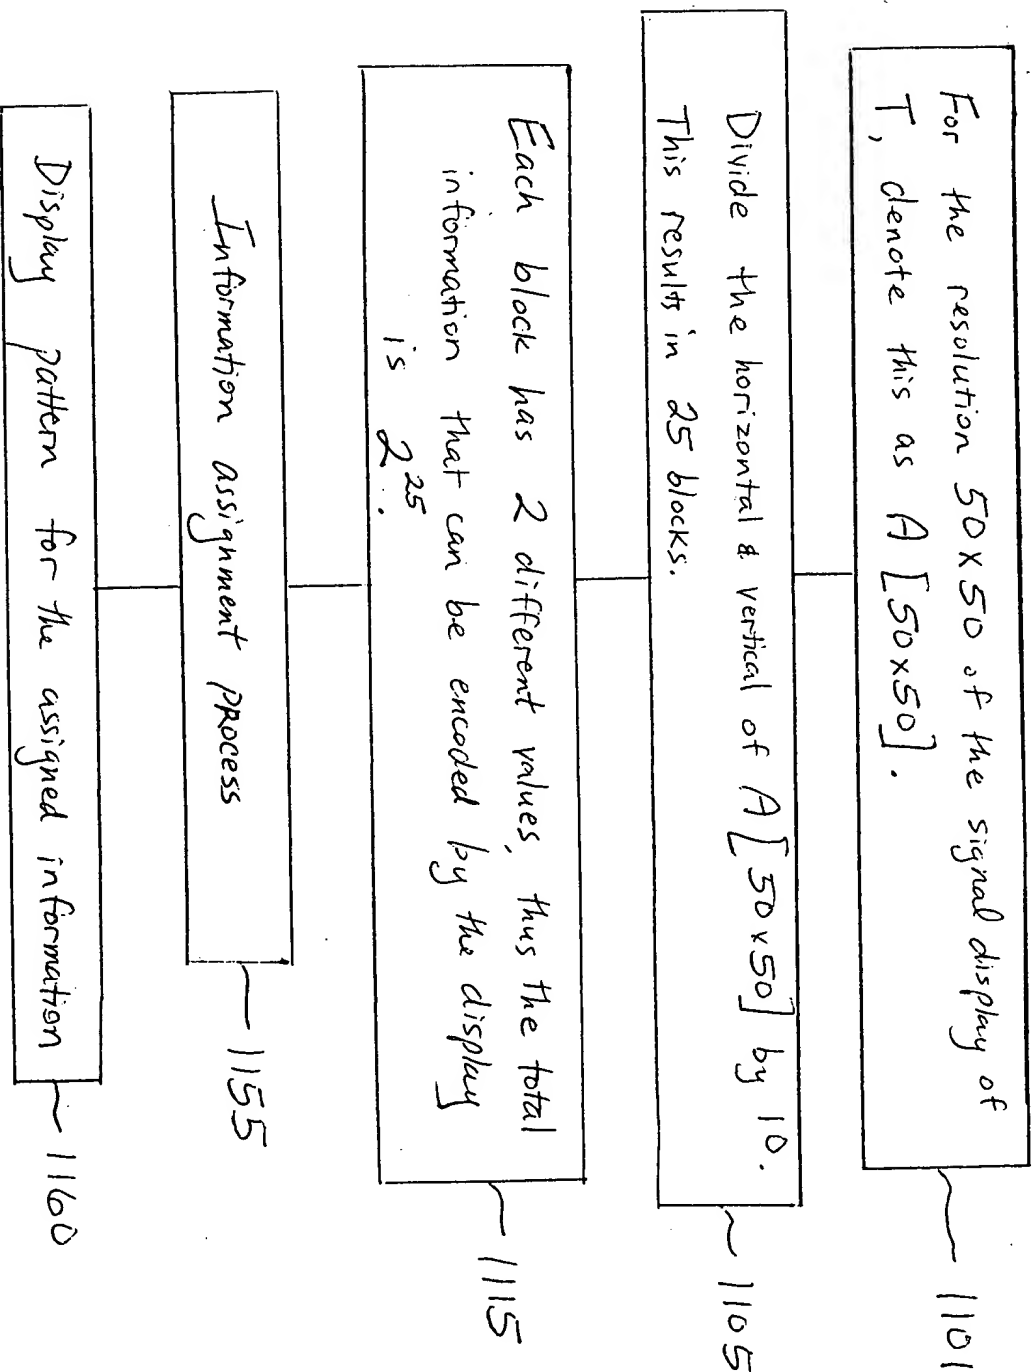 For the resolution 50x50 of the signal display of
T, denote this as A [50x50].
1101
Divide the horizontal & vertical of A [50x50] by 10.
This results in 25 blocks.
1105
Each block has 2 different values, thus the total
information that can be encoded by the display
is 2^25.
1115
Information assignment process
1155
Display pattern for the assigned information
1160